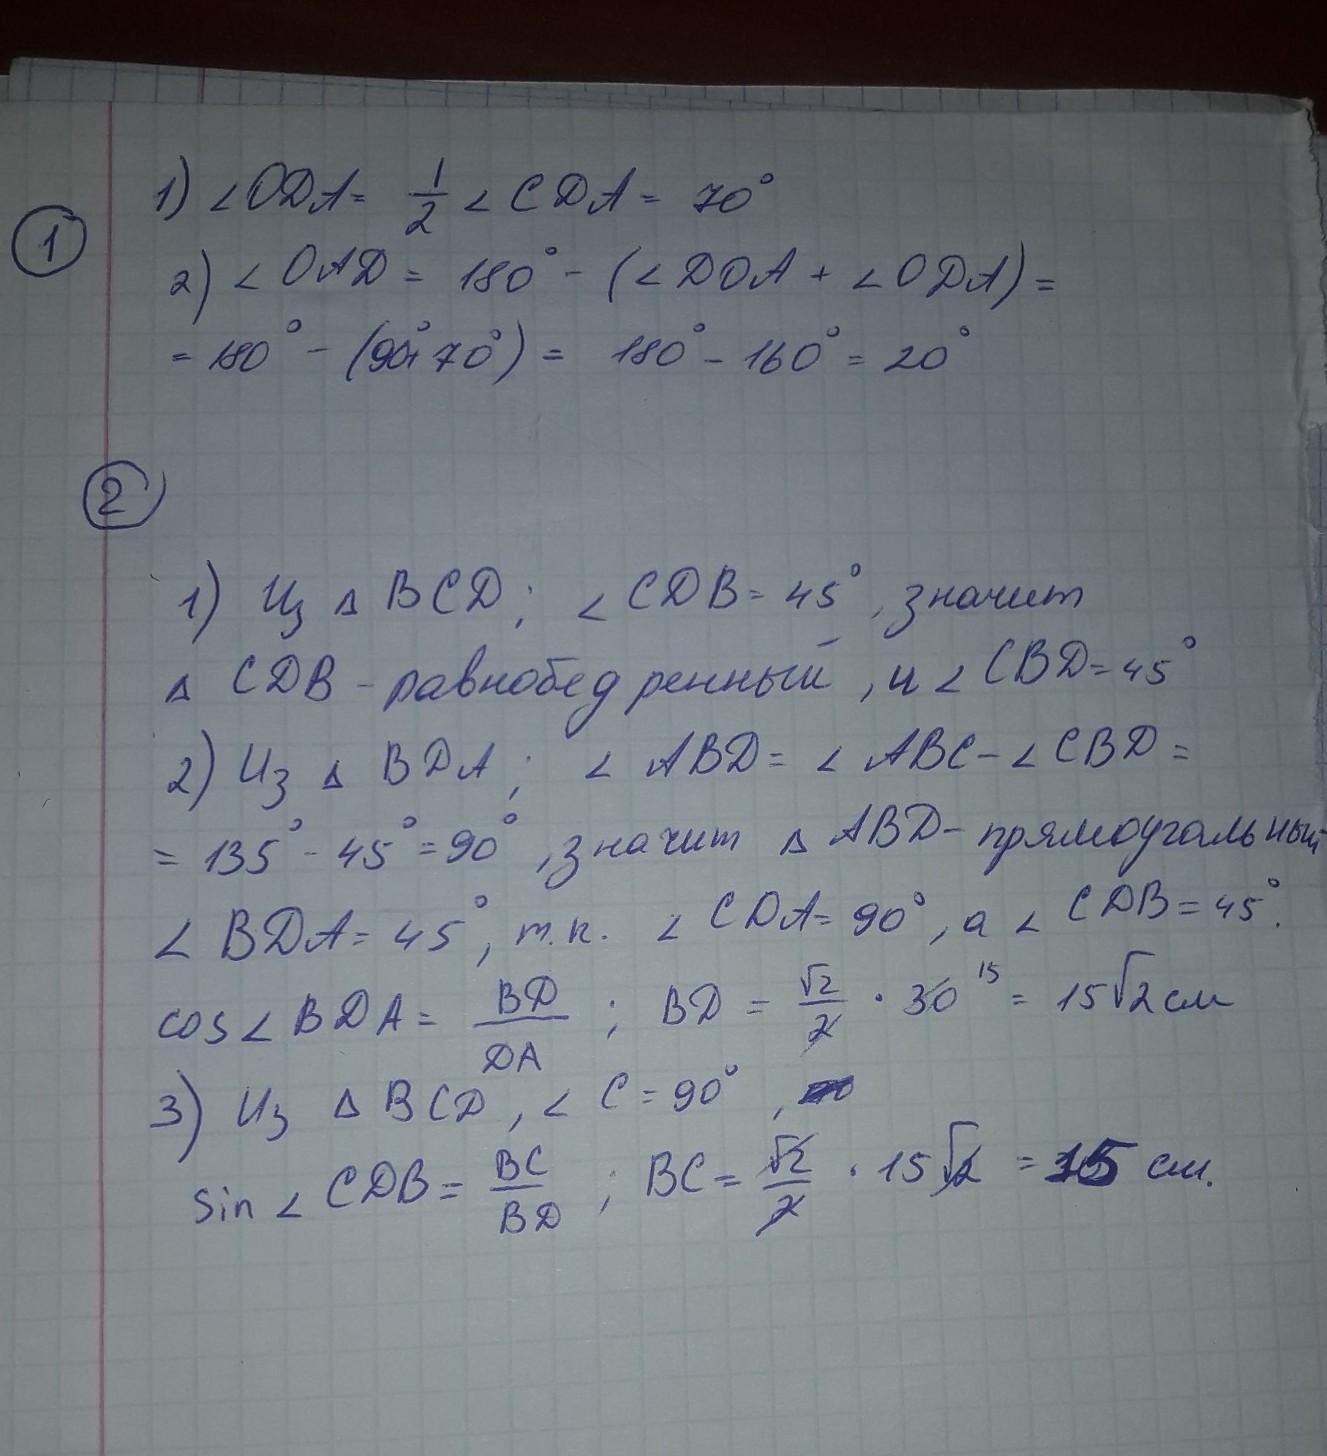 1
1) ∠ODA = 1/2 ∠CDA = 70°
2) ∠OAD = 180° - (∠DOA + ∠ODA) =
= 180° - (90°+70°) = 180° - 160° = 20°
2
1) Из △ BCD; ∠CDB = 45°, значит
△ CDB - равнобедренный, и ∠CBD = 45°
2) Из △ BDA; ∠ABD = ∠ABC - ∠CBD =
= 135° - 45° = 90°, значит △ ABD - прямоугольный
∠BDA = 45°, т.к. ∠CDA = 90°, а ∠CDB = 45°.
cos∠BDA = BD/DA; BD = √2/2 · 30 15 = 15√2 см
3) Из △ BCD, ∠C = 90°,
sin∠CDB = BC/BD; BC = √2/2 · 15√2 = 15 см.